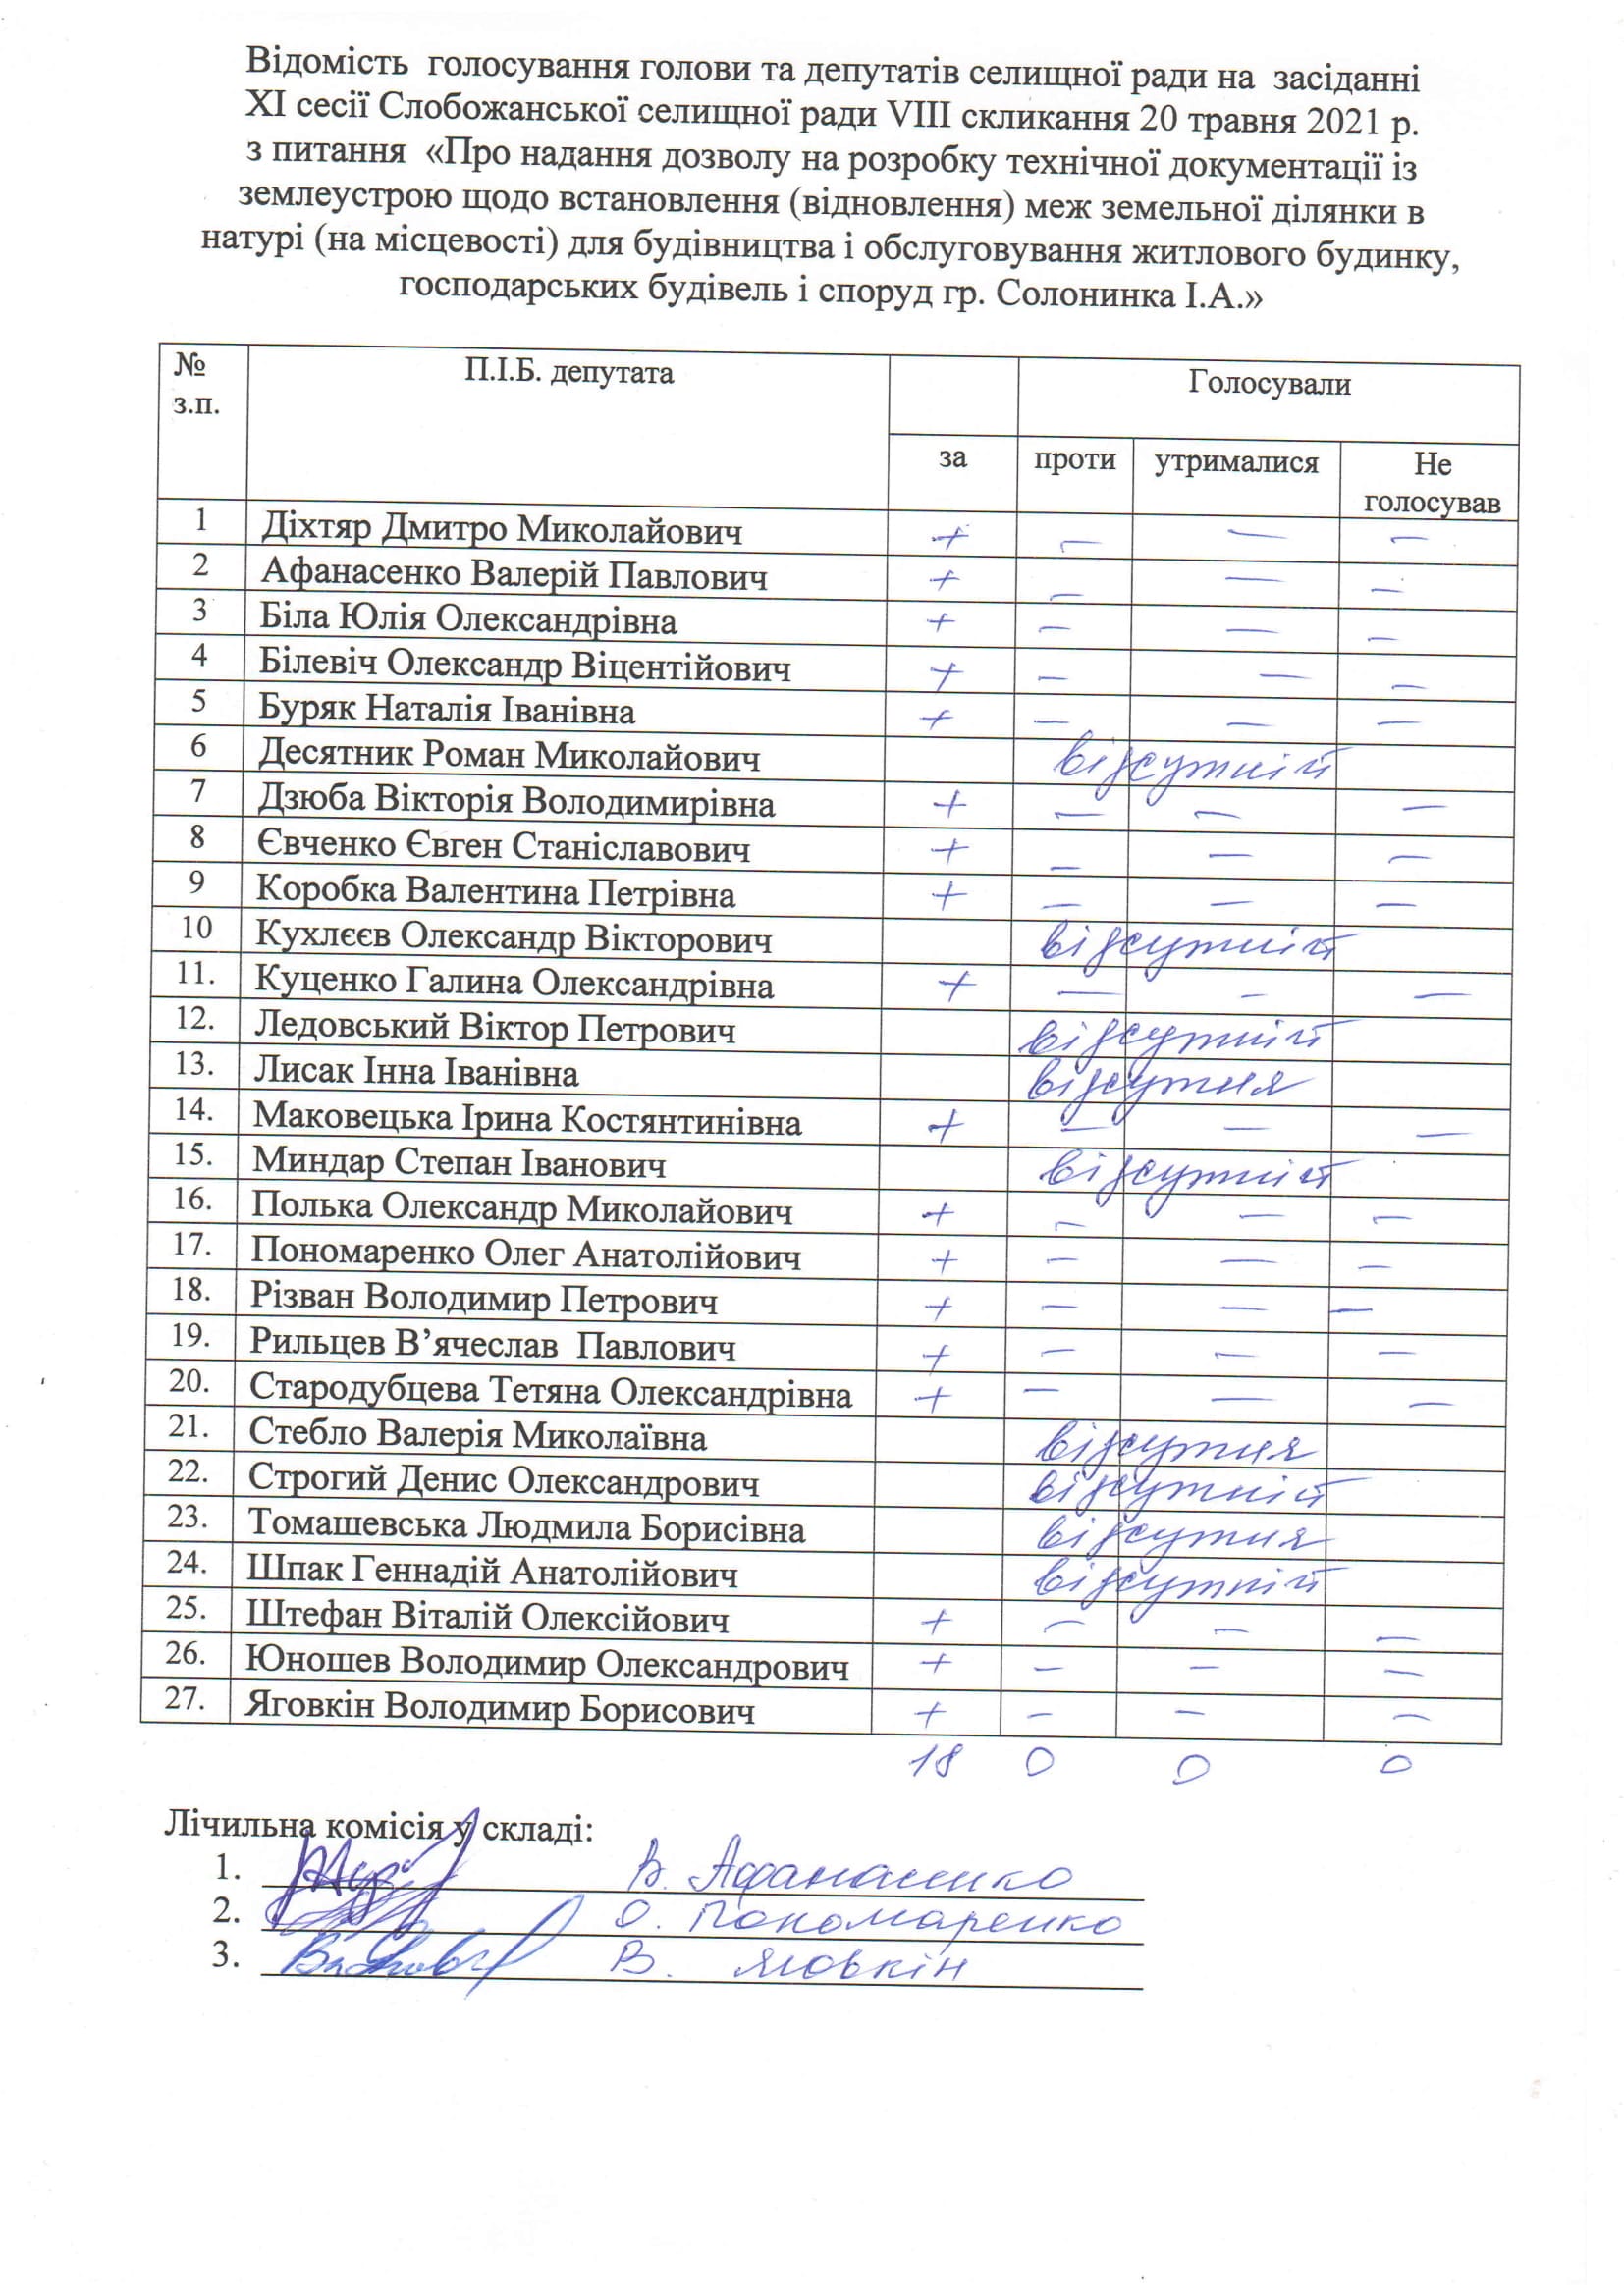 Відомість голосування голови та депутатів селищної ради на засіданні
XI сесії Слобожанської селищної ради VIII скликання 20 травня 2021 р.
з питання «Про надання дозволу на розробку технічної документації із
землеустрою щодо встановлення (відновлення) меж земельної ділянки в
натурі (на місцевості) для будівництва і обслуговування житлового будинку,
господарських будівель і споруд гр. Солонинка І.А.»
№ з.п. П.І.Б. депутата Голосували
за проти утрималися Не голосував
1 Діхтяр Дмитро Миколайович + — — —
2 Афанасенко Валерій Павлович + — — —
3 Біла Юлія Олександрівна + — — —
4 Білевіч Олександр Віцентійович + — — —
5 Буряк Наталія Іванівна + — — —
6 Десятник Роман Миколайович відсутній
7 Дзюба Вікторія Володимирівна + — — —
8 Євченко Євген Станіславович + — — —
9 Коробка Валентина Петрівна + — — —
10 Кухлєєв Олександр Вікторович відсутній
11. Куценко Галина Олександрівна + — — —
12. Ледовський Віктор Петрович відсутній
13. Лисак Інна Іванівна відсутня
14. Маковецька Ірина Костянтинівна + — — —
15. Миндар Степан Іванович відсутній
16. Полька Олександр Миколайович + — — —
17. Пономаренко Олег Анатолійович + — — —
18. Різван Володимир Петрович + — — —
19. Рильцев В’ячеслав Павлович + — — —
20. Стародубцева Тетяна Олександрівна + — — —
21. Стебло Валерія Миколаївна відсутня
22. Строгий Денис Олександрович відсутній
23. Томашевська Людмила Борисівна відсутня
24. Шпак Геннадій Анатолійович відсутній
25. Штефан Віталій Олексійович + — — —
26. Юношев Володимир Олександрович + — — —
27. Яговкін Володимир Борисович + — — —
18 0 0 0
Лічильна комісія у складі:
1. В. Афанасенко
2. О. Пономаренко
3. В. Яговкін